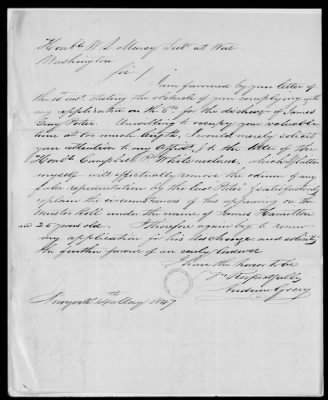 Honble W. L. Marcy Sect at War
Washington
Sir /
I am favored by your letter of
the 10 inst. stating the obstacle of your complying with
my application on the 6th for the discharge of James
Gray Peter. Unwilling to occupy your valuable
time at too much length, I would merely solicit
your attention to my affidt. & to the letter of the
Honble Campbell P. White enclosed, which I flatter
myself will effectually remove the odium of any
false representation by the lad Peter & satisfactorily
explain the circumstances of his appearing on the
Muster Roll under the name of James Hamilton
as 25 years old. I therefore again beg to renew
my application for his discharge and solicit
the further favor of an early answer
I have the honor to be
Yrs Respectfully
Andrew
Newyork May 1847